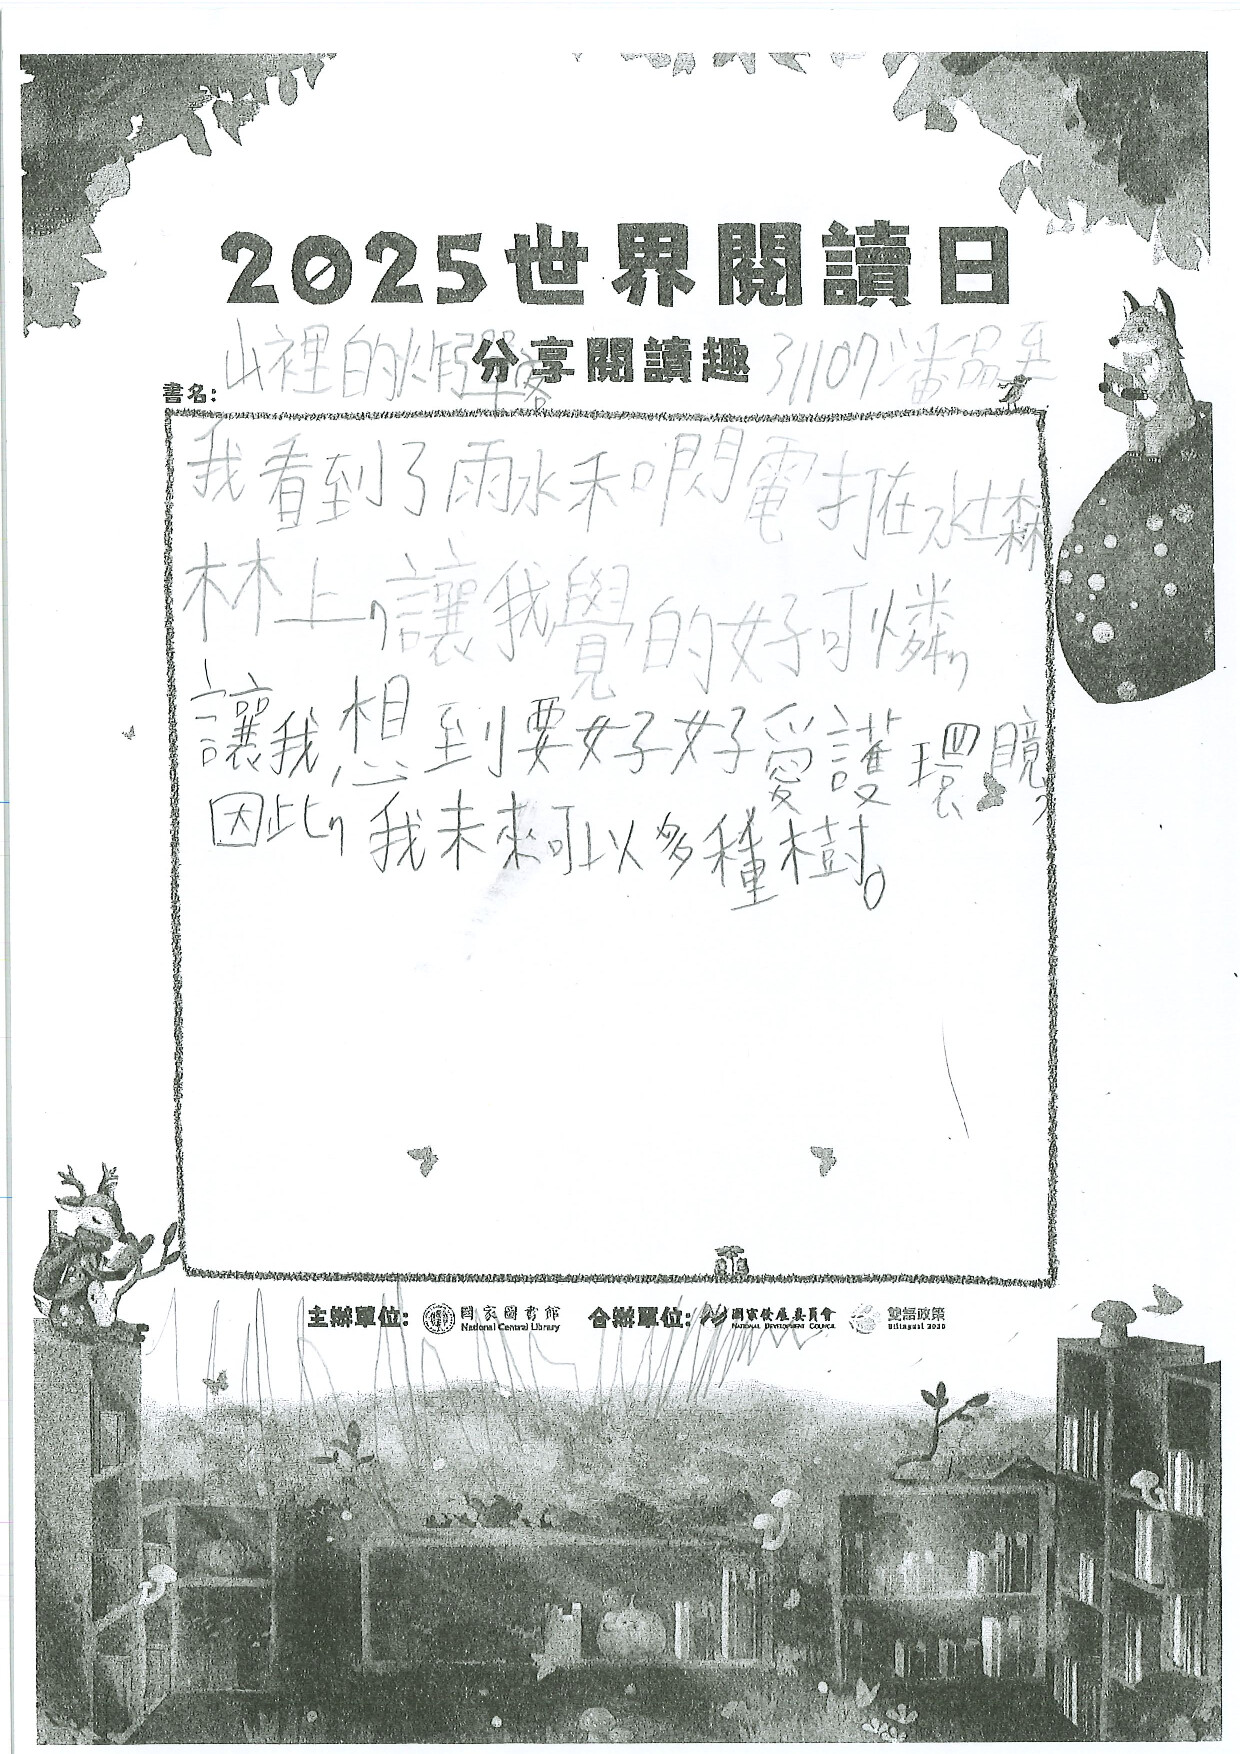 2025世界閱讀日
分享閱讀趣
書名: 山裡的炸彈客 31107 潘品
我看到了雨水和閃電打在水土森
林上,讓我覺的好可憐,
讓我想到要好好愛護環境,
因此,我未來可以多種樹。
主辦單位: 國家圖書館 National Central Library 合辦單位: 國家發展委員會 NATIONAL DEVELOPMENT COUNCIL 雙語政策 Bilingual 2030